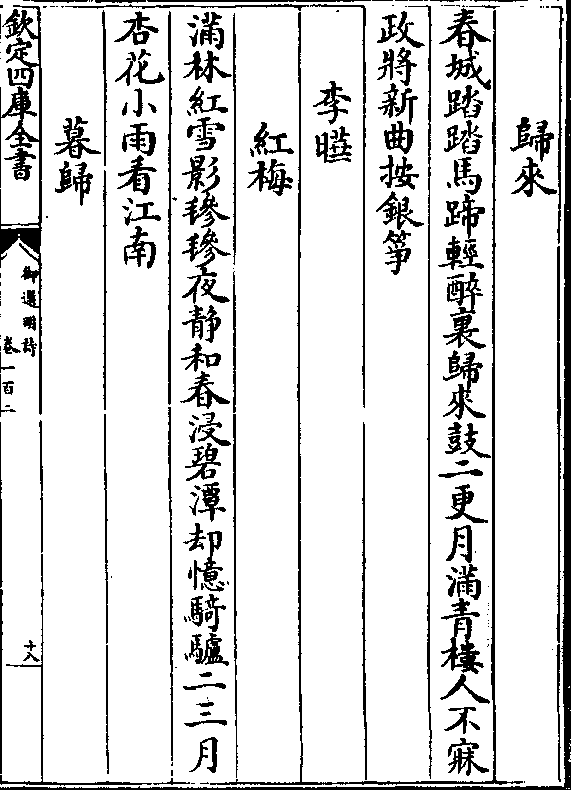 歸來
春城踏踏馬蹄輕醉裏歸來鼓二更月滿青樓人不寐
政將新曲按銀箏
李曣
紅梅
滿林紅雪影毿毿夜静和春浸碧潭却憶騎驢二三月
杏花小雨看江南
暮歸
欽定四庫全書
御選明詩
卷一百二
十八